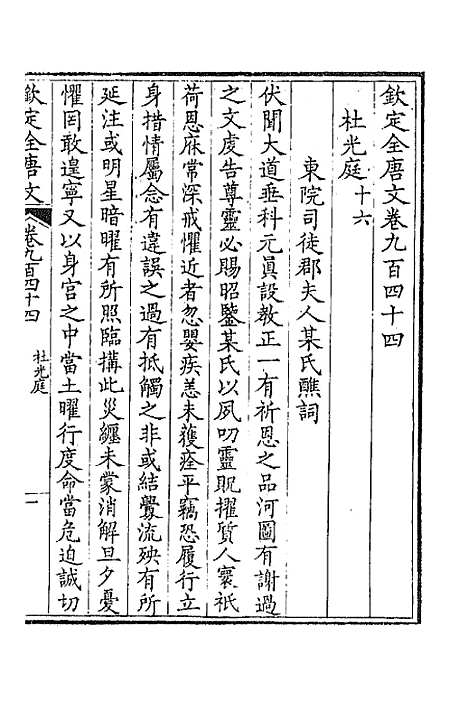 欽定全唐文卷九百四十四
杜光庭十六
東院司徒郡夫人某氏醮詞
伏聞大道垂科元眞設教正一有祈恩之品河圖有謝過
之文虔告尊靈必賜昭鑒某氏以夙叨靈貺擢質人寰祇
荷恩庥常深戒懼近者忽嬰疾恙未獲痊平竊恐履行立
身措情屬念有違誤之過有抵觸之非或結釁流殃有所
延注或明星暗曜有所照臨搆此災纏未蒙消解旦夕憂
懼罔敢遑寧又以身宮之中當土曜行度命當危迫誠切
欽定全唐文
卷九百四十四
杜光庭
一